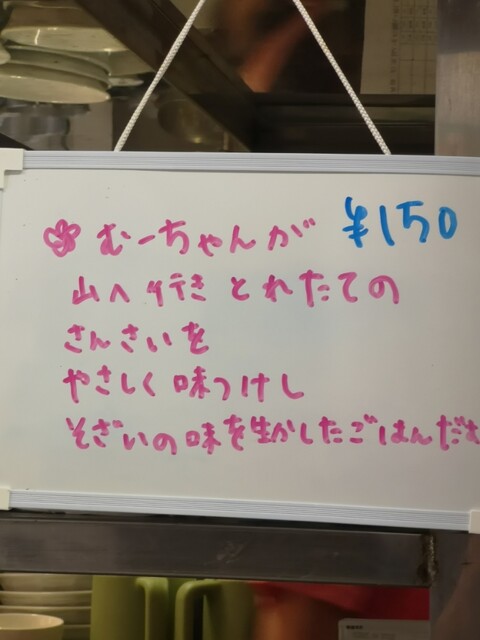 むーちゃんが ¥150
山へ行き とれたての
さんさいを
やさしく味つけし
そざいの味を生かしたごはんだよ